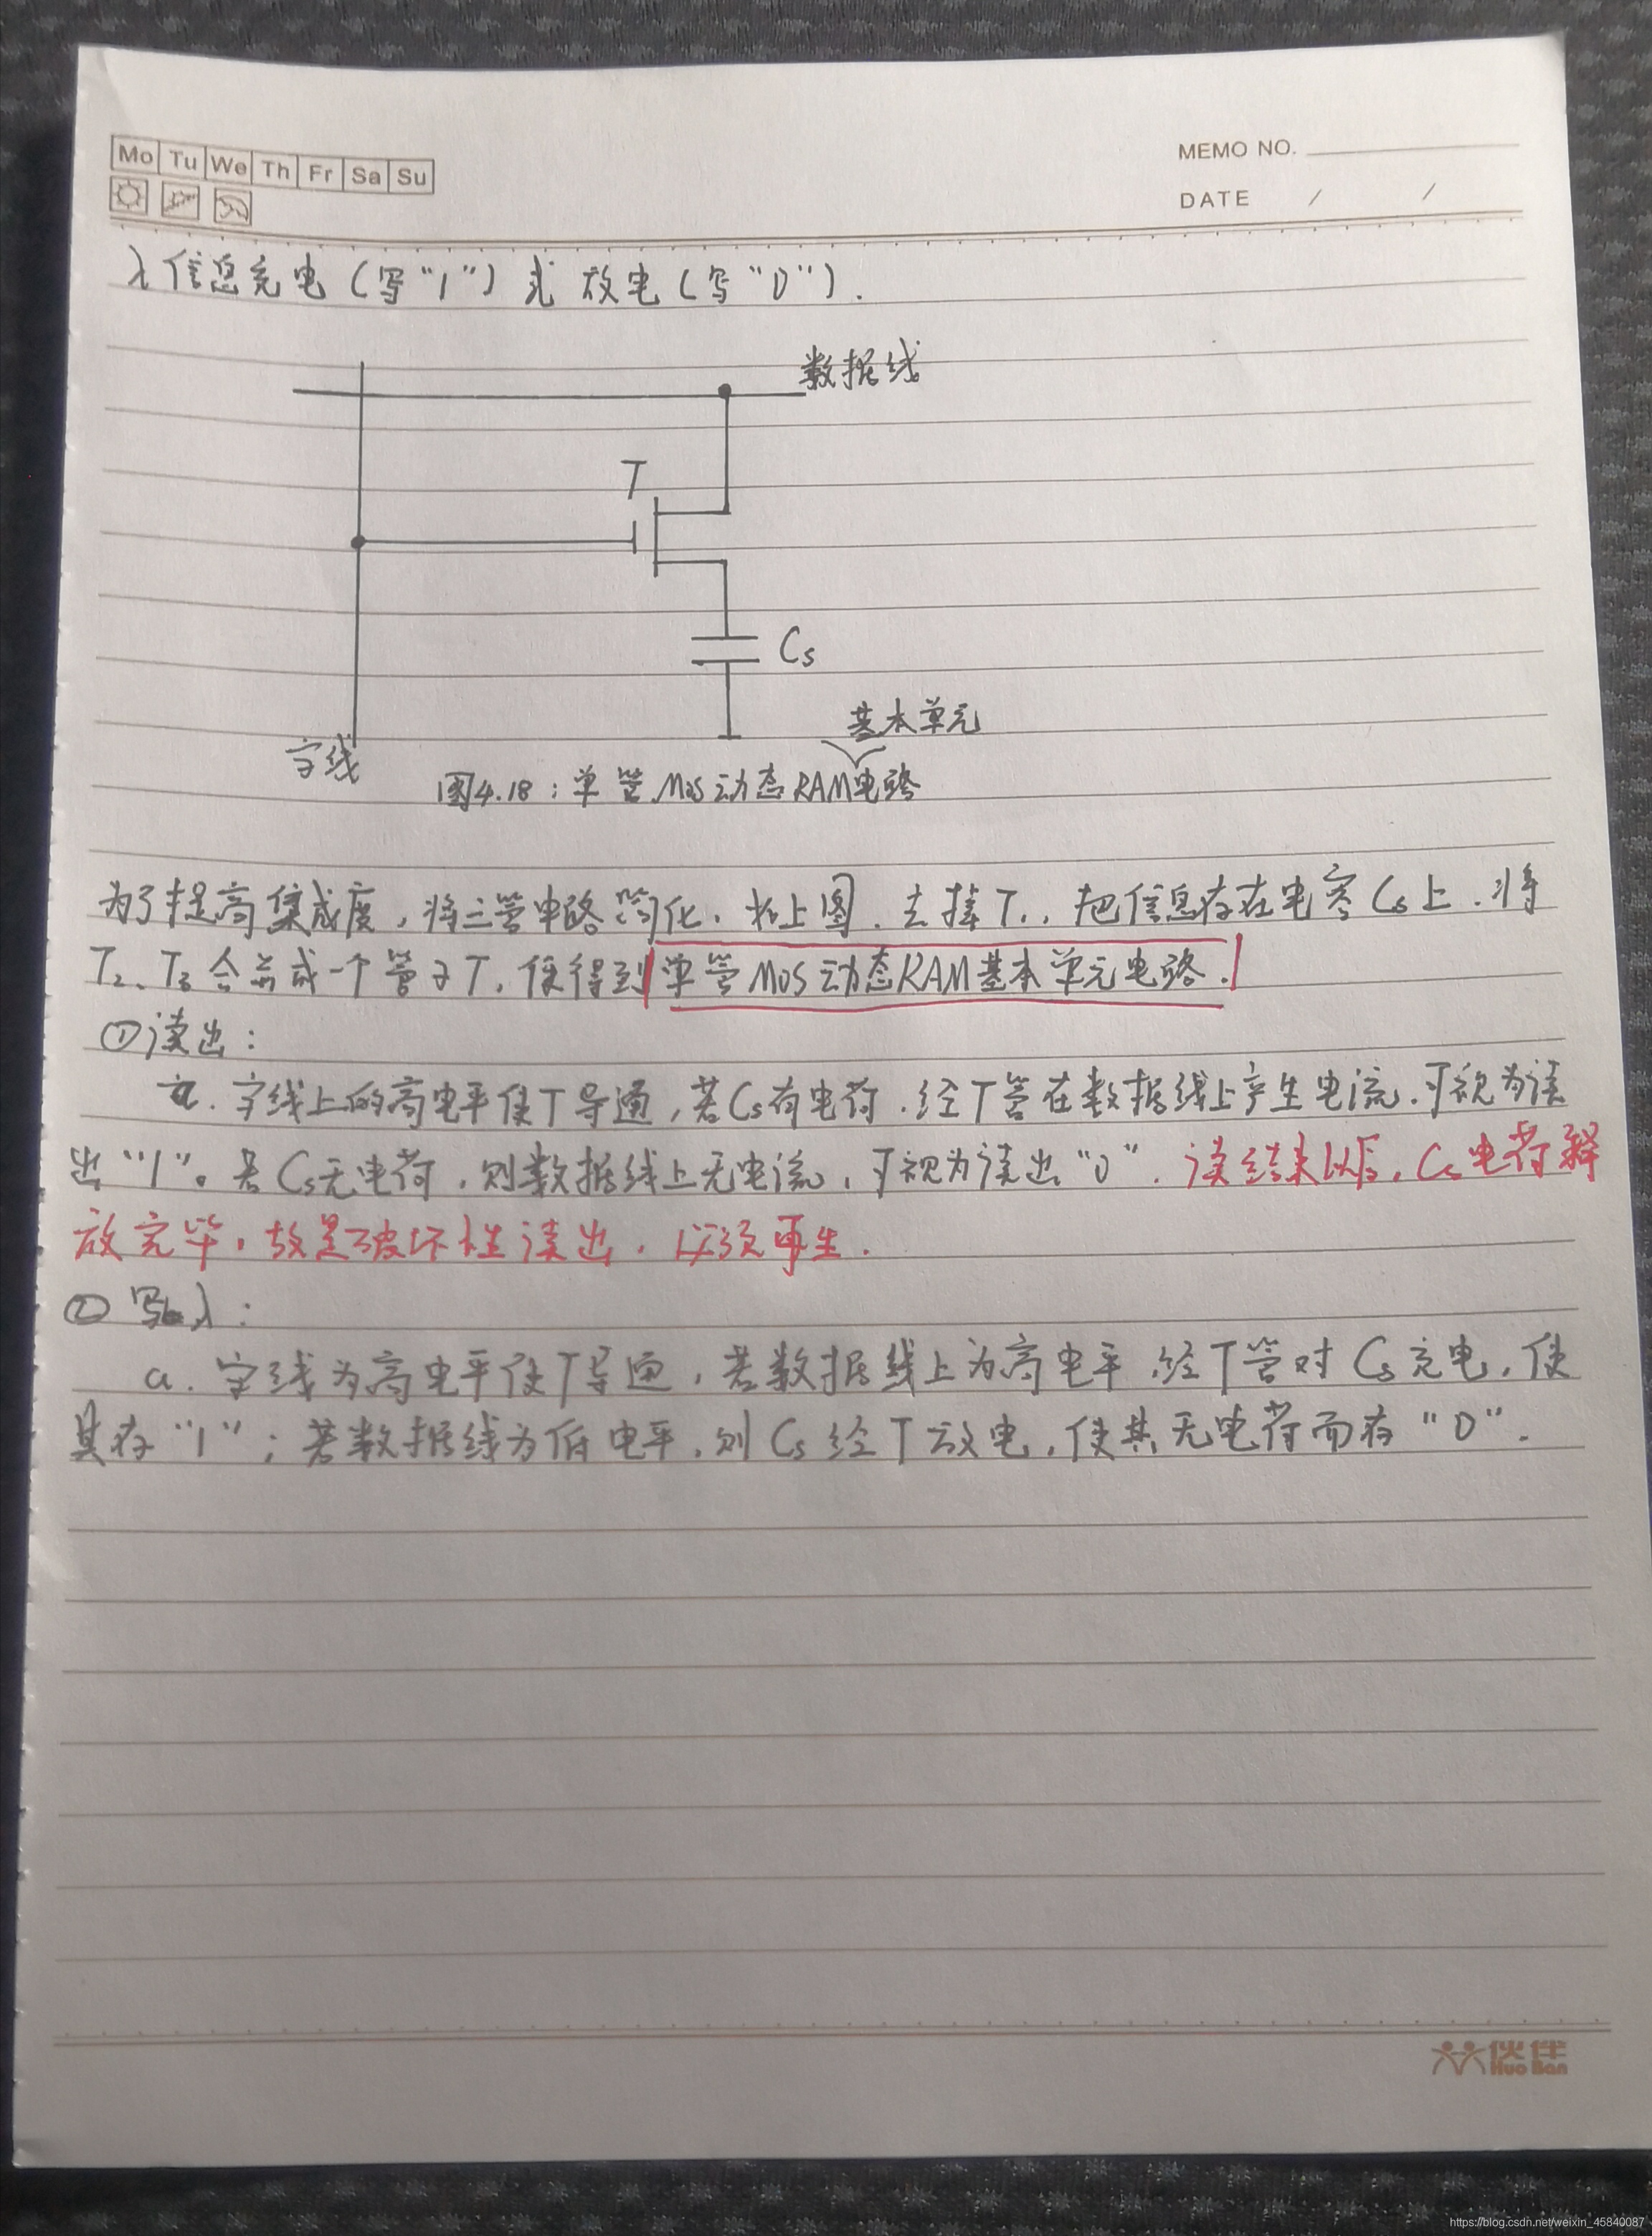 Mo Tu We Th Fr Sa Su
MEMO NO.
DATE / /
入信息充电(写“1”)或放电(写“0”).
数据线
T
Cs
字线
基本单元
图4.18:单管MOS动态RAM电路
为了提高集成度,将三管电路简化,如上图.去掉T1,把信息存在电容Cs上.将
T2、T3合并成一个管子T,便得到单管MOS动态RAM基本单元电路.
①读出:
a.字线上的高电平使T导通,若Cs有电荷.经T管在数据线上产生电流.可视为读
出“1”。若Cs无电荷,则数据线上无电流,可视为读出“0”.读结束以后,Cs电荷释
放完毕,故是破坏性读出,必须再生.
②写入:
a.字线为高电平使T导通,若数据线上为高电平.经T管对Cs充电,使
其存“1”;若数据线为低电平,则Cs经T放电,使其无电荷而存“0”.
伙伴
Huo Ban
https://blog.csdn.net/weixin_45840087